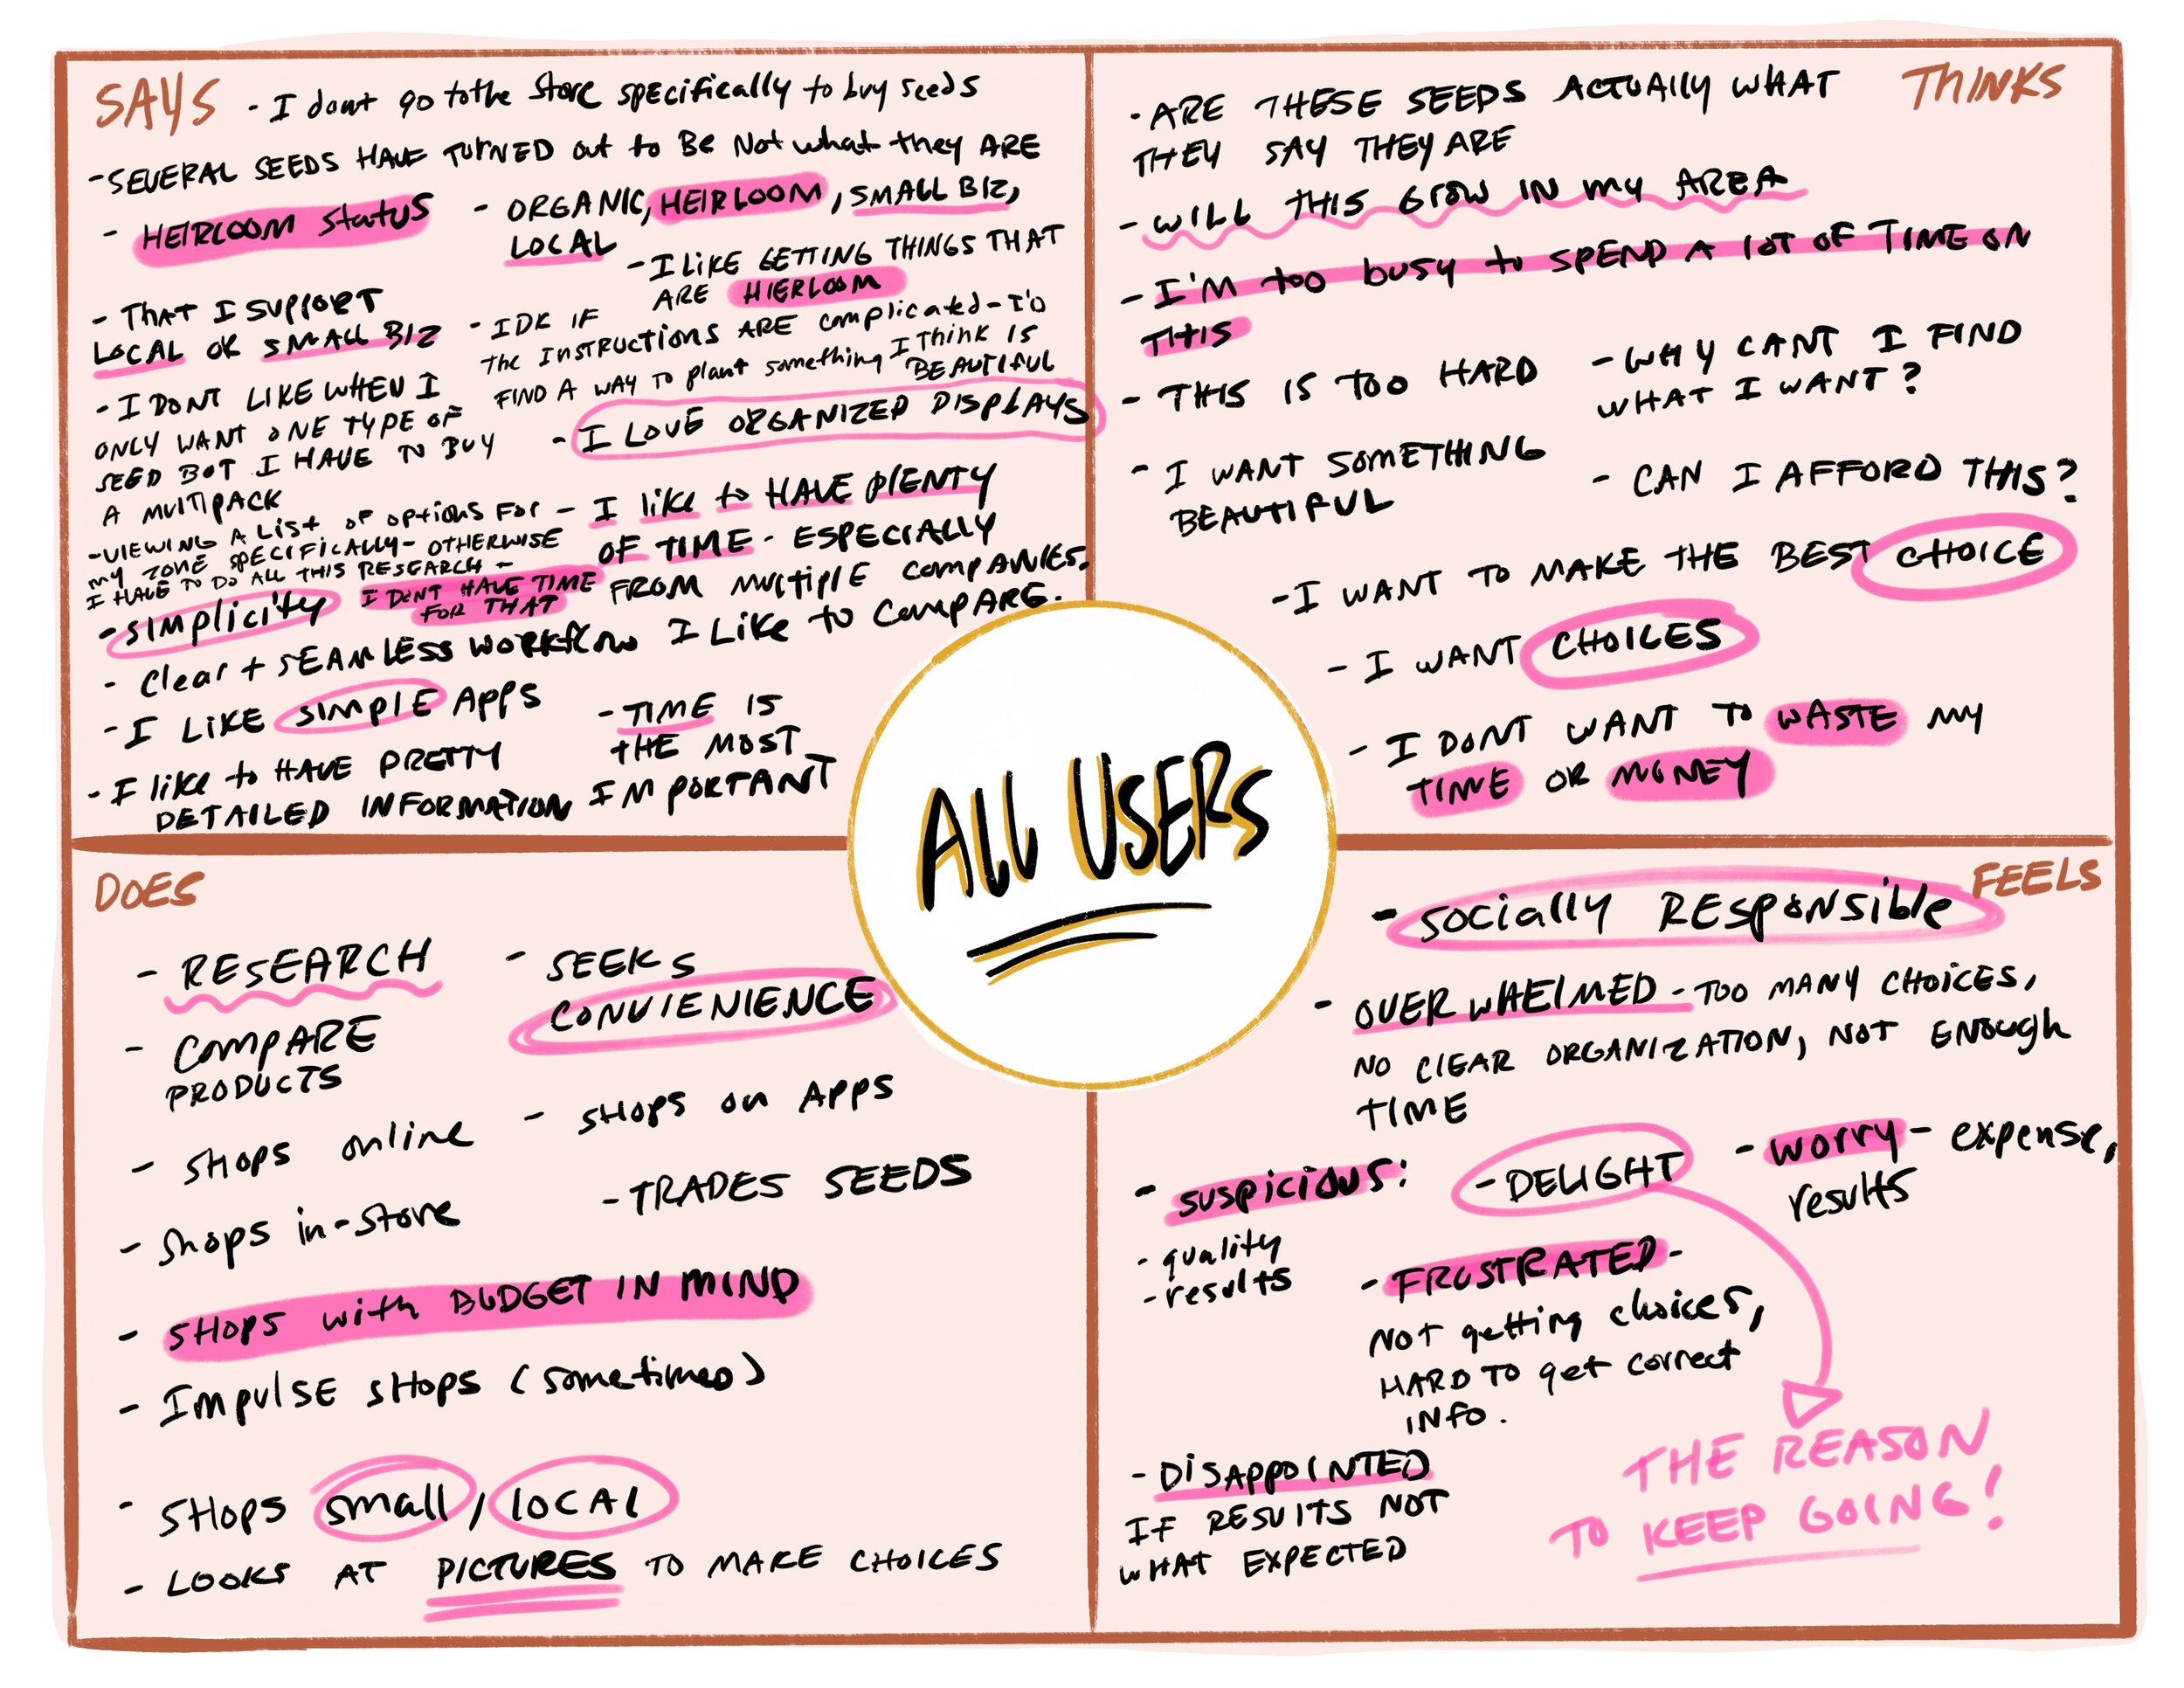 SAYS
- I dont go to the store specifically to buy seeds
- SEVERAL SEEDS HAVE TURNED out to BE NOT what they ARE
- HEIRLOOM status
- ORGANIC, HEIRLOOM, SMALL BIZ,
LOCAL
- I LIKE GETTING THINGS THAT
ARE HIERLOOM
- THAT I SUPPORT
LOCAL OR SMALL BIZ
- IDK IF
the INSTRUCTIONS ARE complicated - I'D
FIND A WAY TO plant something I THINK IS
BEAUTIFUL
- I DONT LIKE WHEN I
ONLY WANT ONE TYPE OF
SEED BUT I HAVE TO BUY
A MULTIPACK
- I LOVE ORGANIZED DISPLAYS
- VIEWING A LIST OF OPTIONS FOR
MY ZONE SPECIFICALLY - OTHERWISE
I HAVE TO DO ALL THIS RESEARCH -
I DONT HAVE TIME
FOR THAT
- I like to HAVE PLENTY
OF TIME - ESPECIALLY
FROM MULTIPLE COMPANIES.
I LIKE to COMPARE.
- SIMPLICITY
- Clear + SEAMLESS WORKFLOW
- I LIKE SIMPLE APPS
- I like to HAVE PRETTY
DETAILED INFORMATION
- TIME IS
THE MOST
IMPORTANT
THINKS
- ARE THESE SEEDS ACTUALLY WHAT
THEY SAY THEY ARE
- WILL THIS GROW IN MY AREA
- I'M too busy to SPEND A LOT OF TIME ON
THIS
- THIS IS TOO HARD
- WHY CANT I FIND
WHAT I WANT?
- I WANT SOMETHING
BEAUTIFUL
- CAN I AFFORD THIS?
- I WANT TO MAKE THE BEST CHOICE
- I WANT CHOICES
- I DONT WANT TO WASTE MY
TIME OR MONEY
ALL USERS
DOES
- RESEARCH
- SEEKS
CONVIENIENCE
- COMPARE
PRODUCTS
- SHOPS online
- SHOPS on APPS
- Shops in-store
- TRADES SEEDS
- SHOPS with BUDGET IN MIND
- IMPULSE SHOPS (sometimes)
- SHOPS small, LOCAL
- LOOKS AT PICTURES TO MAKE CHOICES
FEELS
- Socially RESPONSIBLE
- OVERWHELMED - TOO MANY CHOICES,
NO CLEAR ORGANIZATION, NOT ENOUGH
TIME
- suspicious:
- quality
- results
- DELIGHT
- worry - expense,
results
- FRUSTRATED -
NOT getting choices,
HARD TO get correct
INFO.
- DISAPPOINTED
IF RESULTS NOT
WHAT EXPECTED
THE REASON
TO KEEP GOING!